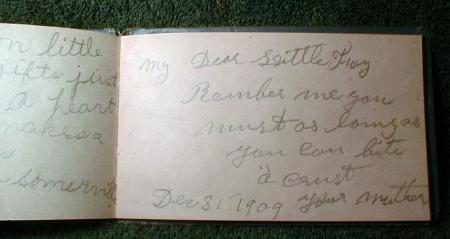 n little
gifts just
A heart
makes a
n somervill
my Dear Seittle Kay
Rember me you
must as long as
you can bite
a crust
Dec 31, 1909 your mother